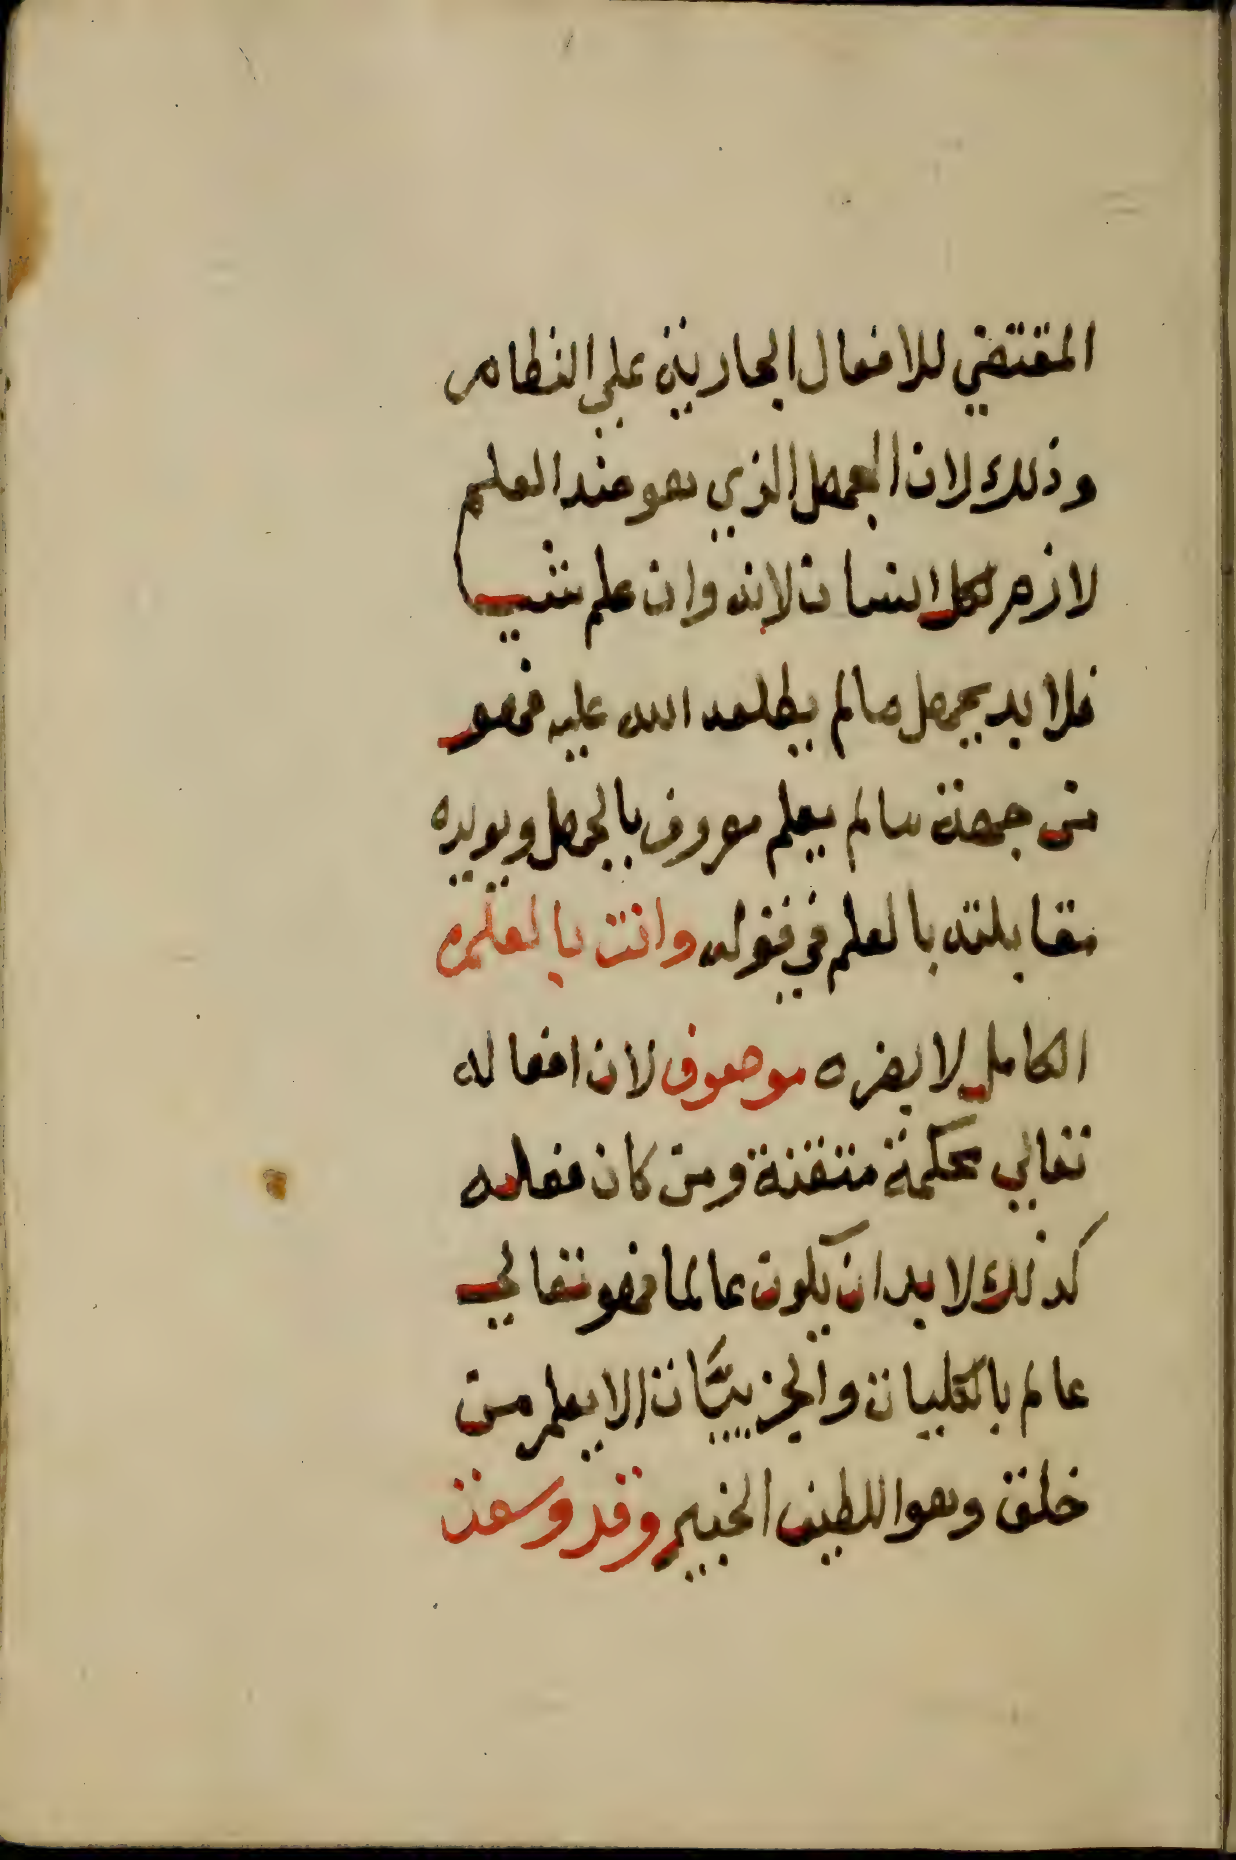 المقتضي للافعال الجارية علي النظام
وذلك لان الجهل الذي هو ضد العلم
لازم لكل انسان لانه وان علم شيا
فلا بد يجهل مالم يطلعه الله عليه فهو
من جهة مالم يعلم معروف بالجهل ويويده
مقابلته بالعلم في قوله وانت بالعلم
الكامل لا بضره موصوف لان افعاله
تعالي محكمة متقنة ومن كان فعله
كذلك لا بد ان يكون عالما فهو تعالي
عالم بالكليات والجزييات الا يعلم من
خلق وهو اللطيف الخبير وقد وسعت